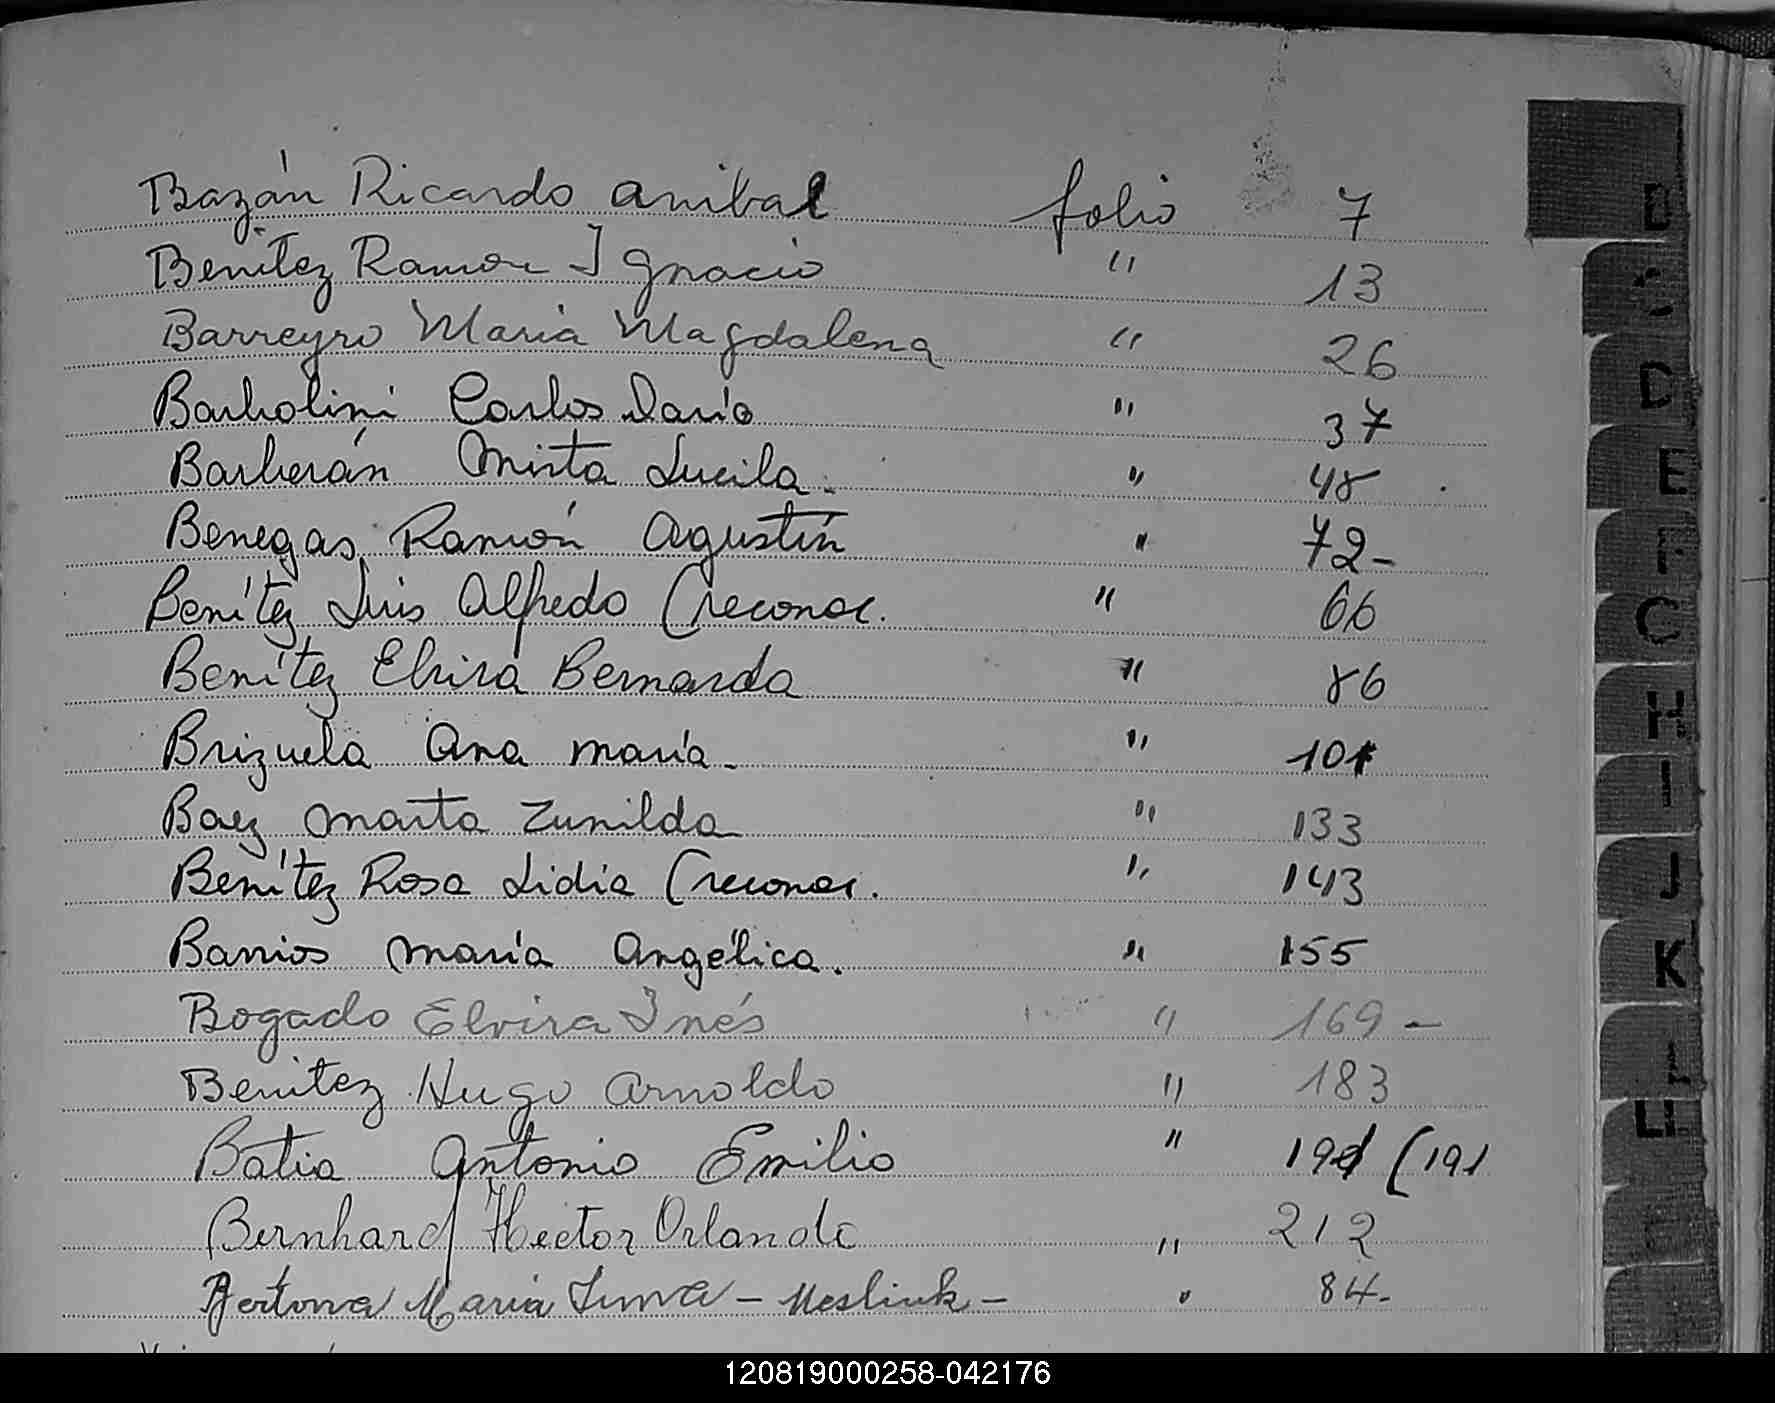 Bazán Ricardo Anibal folio 7
Benitez Ramon Ignacio " 13
Barreyro Maria Magdalena " 26
Bartolini Carlos Darío " 37
Barberán Mirta Lucila. " 48
Benegas Ramón Agustín " 72-
Benítez Luis Alfredo (reconoc. " 66
Benítez Elvira Bernarda " 86
Brizuela Ana María - " 101
Baez Marta Zunilda " 133
Benítez Rosa Lidia (reconoc. " 143
Barrios María Angélica. " 155
Bogado Elvira Inés " 169 -
Benitez Hugo Arnoldo " 183
Batia Antonio Emilio " (191
Bernhard Hector Orlando " 212
Maria - - " 84-
B
C
D
E
F
G
H
I
J
K
120819000258-042176